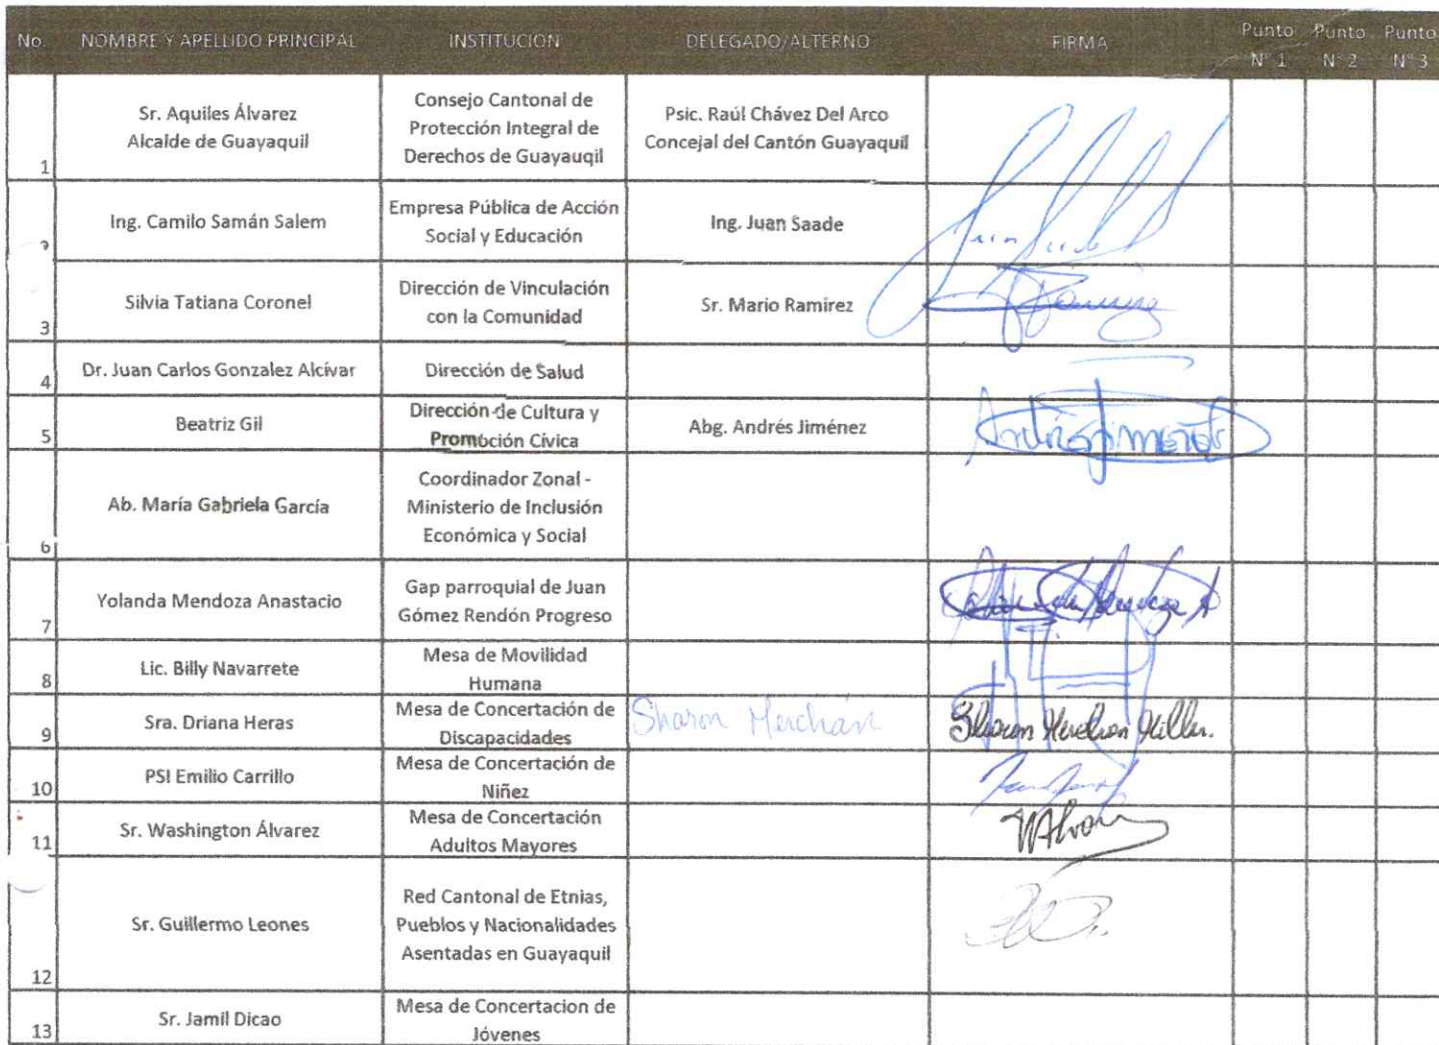 No. NOMBRE Y APELLIDO PRINCIPAL INSTITUCION DELEGADO/ALTERNO FIRMA Punto N° 1 Punto N° 2 Punto N° 3
1 Sr. Aquiles Álvarez
Alcalde de Guayaquil
Consejo Cantonal de
Protección Integral de
Derechos de Guayauqil
Psic. Raúl Chávez Del Arco
Concejal del Cantón Guayaquil
Ing. Camilo Samán Salem
Empresa Pública de Acción
Social y Educación
Ing. Juan Saade
3 Silvia Tatiana Coronel
Dirección de Vinculación
con la Comunidad
Sr. Mario Ramirez
4 Dr. Juan Carlos Gonzalez Alcívar
Dirección de Salud
5 Beatriz Gil
Dirección de Cultura y
Promoción Cívica
Abg. Andrés Jiménez
6 Ab. María Gabriela García
Coordinador Zonal -
Ministerio de Inclusión
Económica y Social
7 Yolanda Mendoza Anastacio
Gap parroquial de Juan
Gómez Rendón Progreso
8 Lic. Billy Navarrete
Mesa de Movilidad
Humana
9 Sra. Driana Heras
Mesa de Concertación de
Discapacidades
Sharon Merchán
10 PSI Emilio Carrillo
Mesa de Concertación de
Niñez
11 Sr. Washington Álvarez
Mesa de Concertación
Adultos Mayores
12 Sr. Guillermo Leones
Red Cantonal de Etnias,
Pueblos y Nacionalidades
Asentadas en Guayaquil
13 Sr. Jamil Dicao
Mesa de Concertacion de
Jóvenes